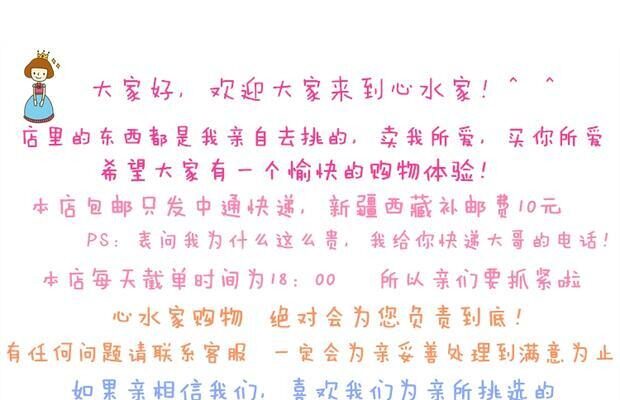 大家好，欢迎大家来到心水家！^ ^
店里的东西都是我亲自去挑的，卖我所爱，买你所爱
希望大家有一个愉快的购物体验！
本店包邮只发中通快递，新疆西藏补邮费10元
PS：表问我为什么这么贵，我给你快递大哥的电话！
本店每天截单时间为18：00 所以亲们要抓紧啦
心水家购物 绝对会为您负责到底！
有任何问题请联系客服 一定会为亲妥善处理到满意为止
如果亲相信我们，喜欢我们为亲所挑选的